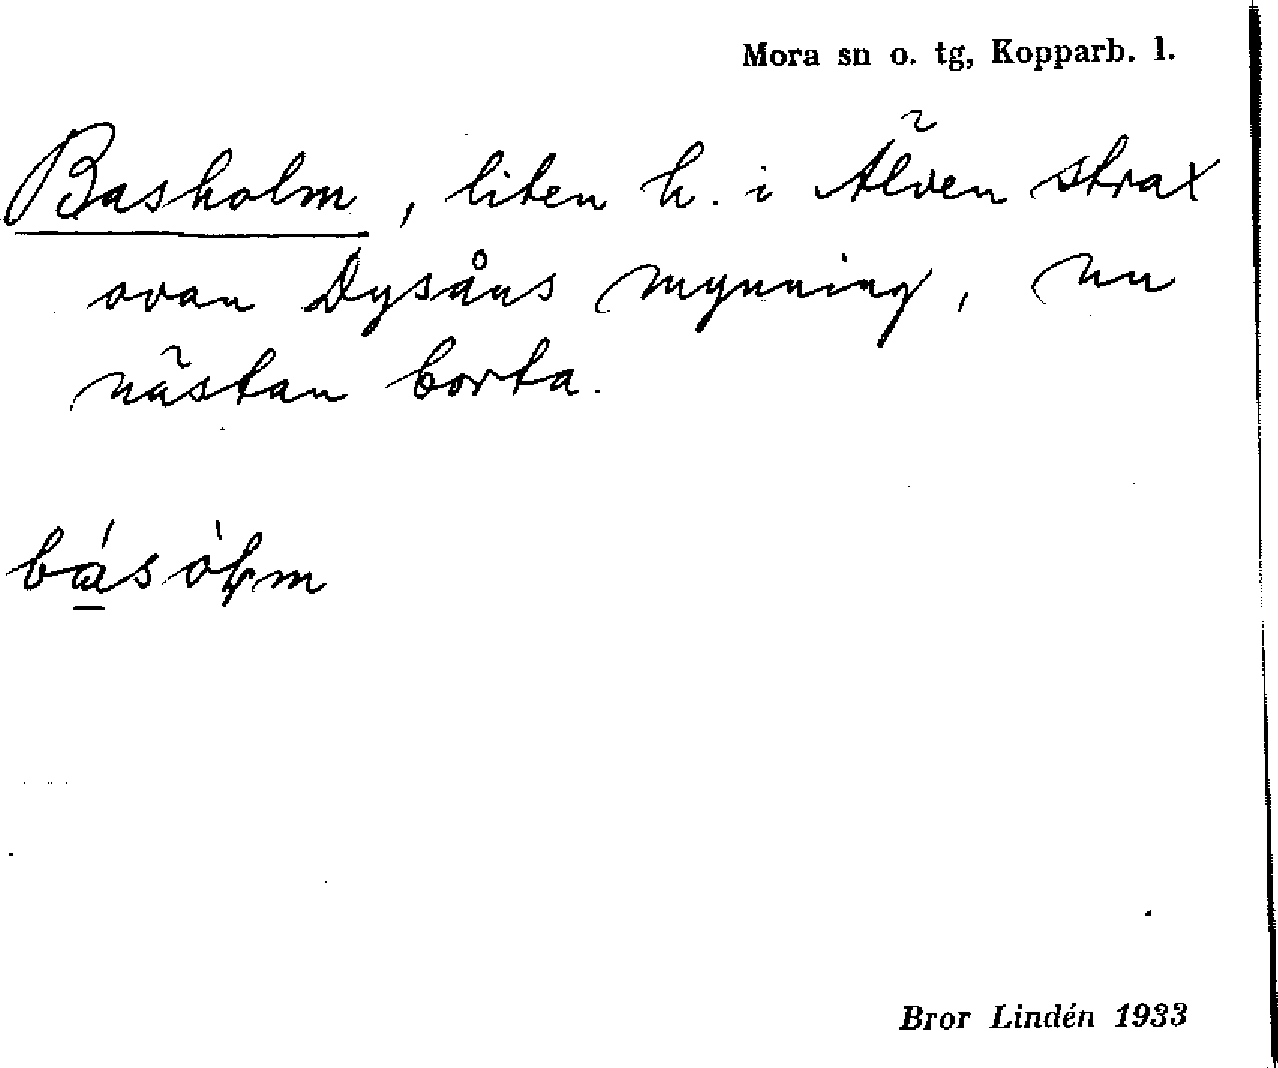 Mora sn o. tg, Kopparb. l.
Basholm, liten h. i Älven strax
ovan Dysåns mynning, nu
nästan borta.
Bror Lindén 1933